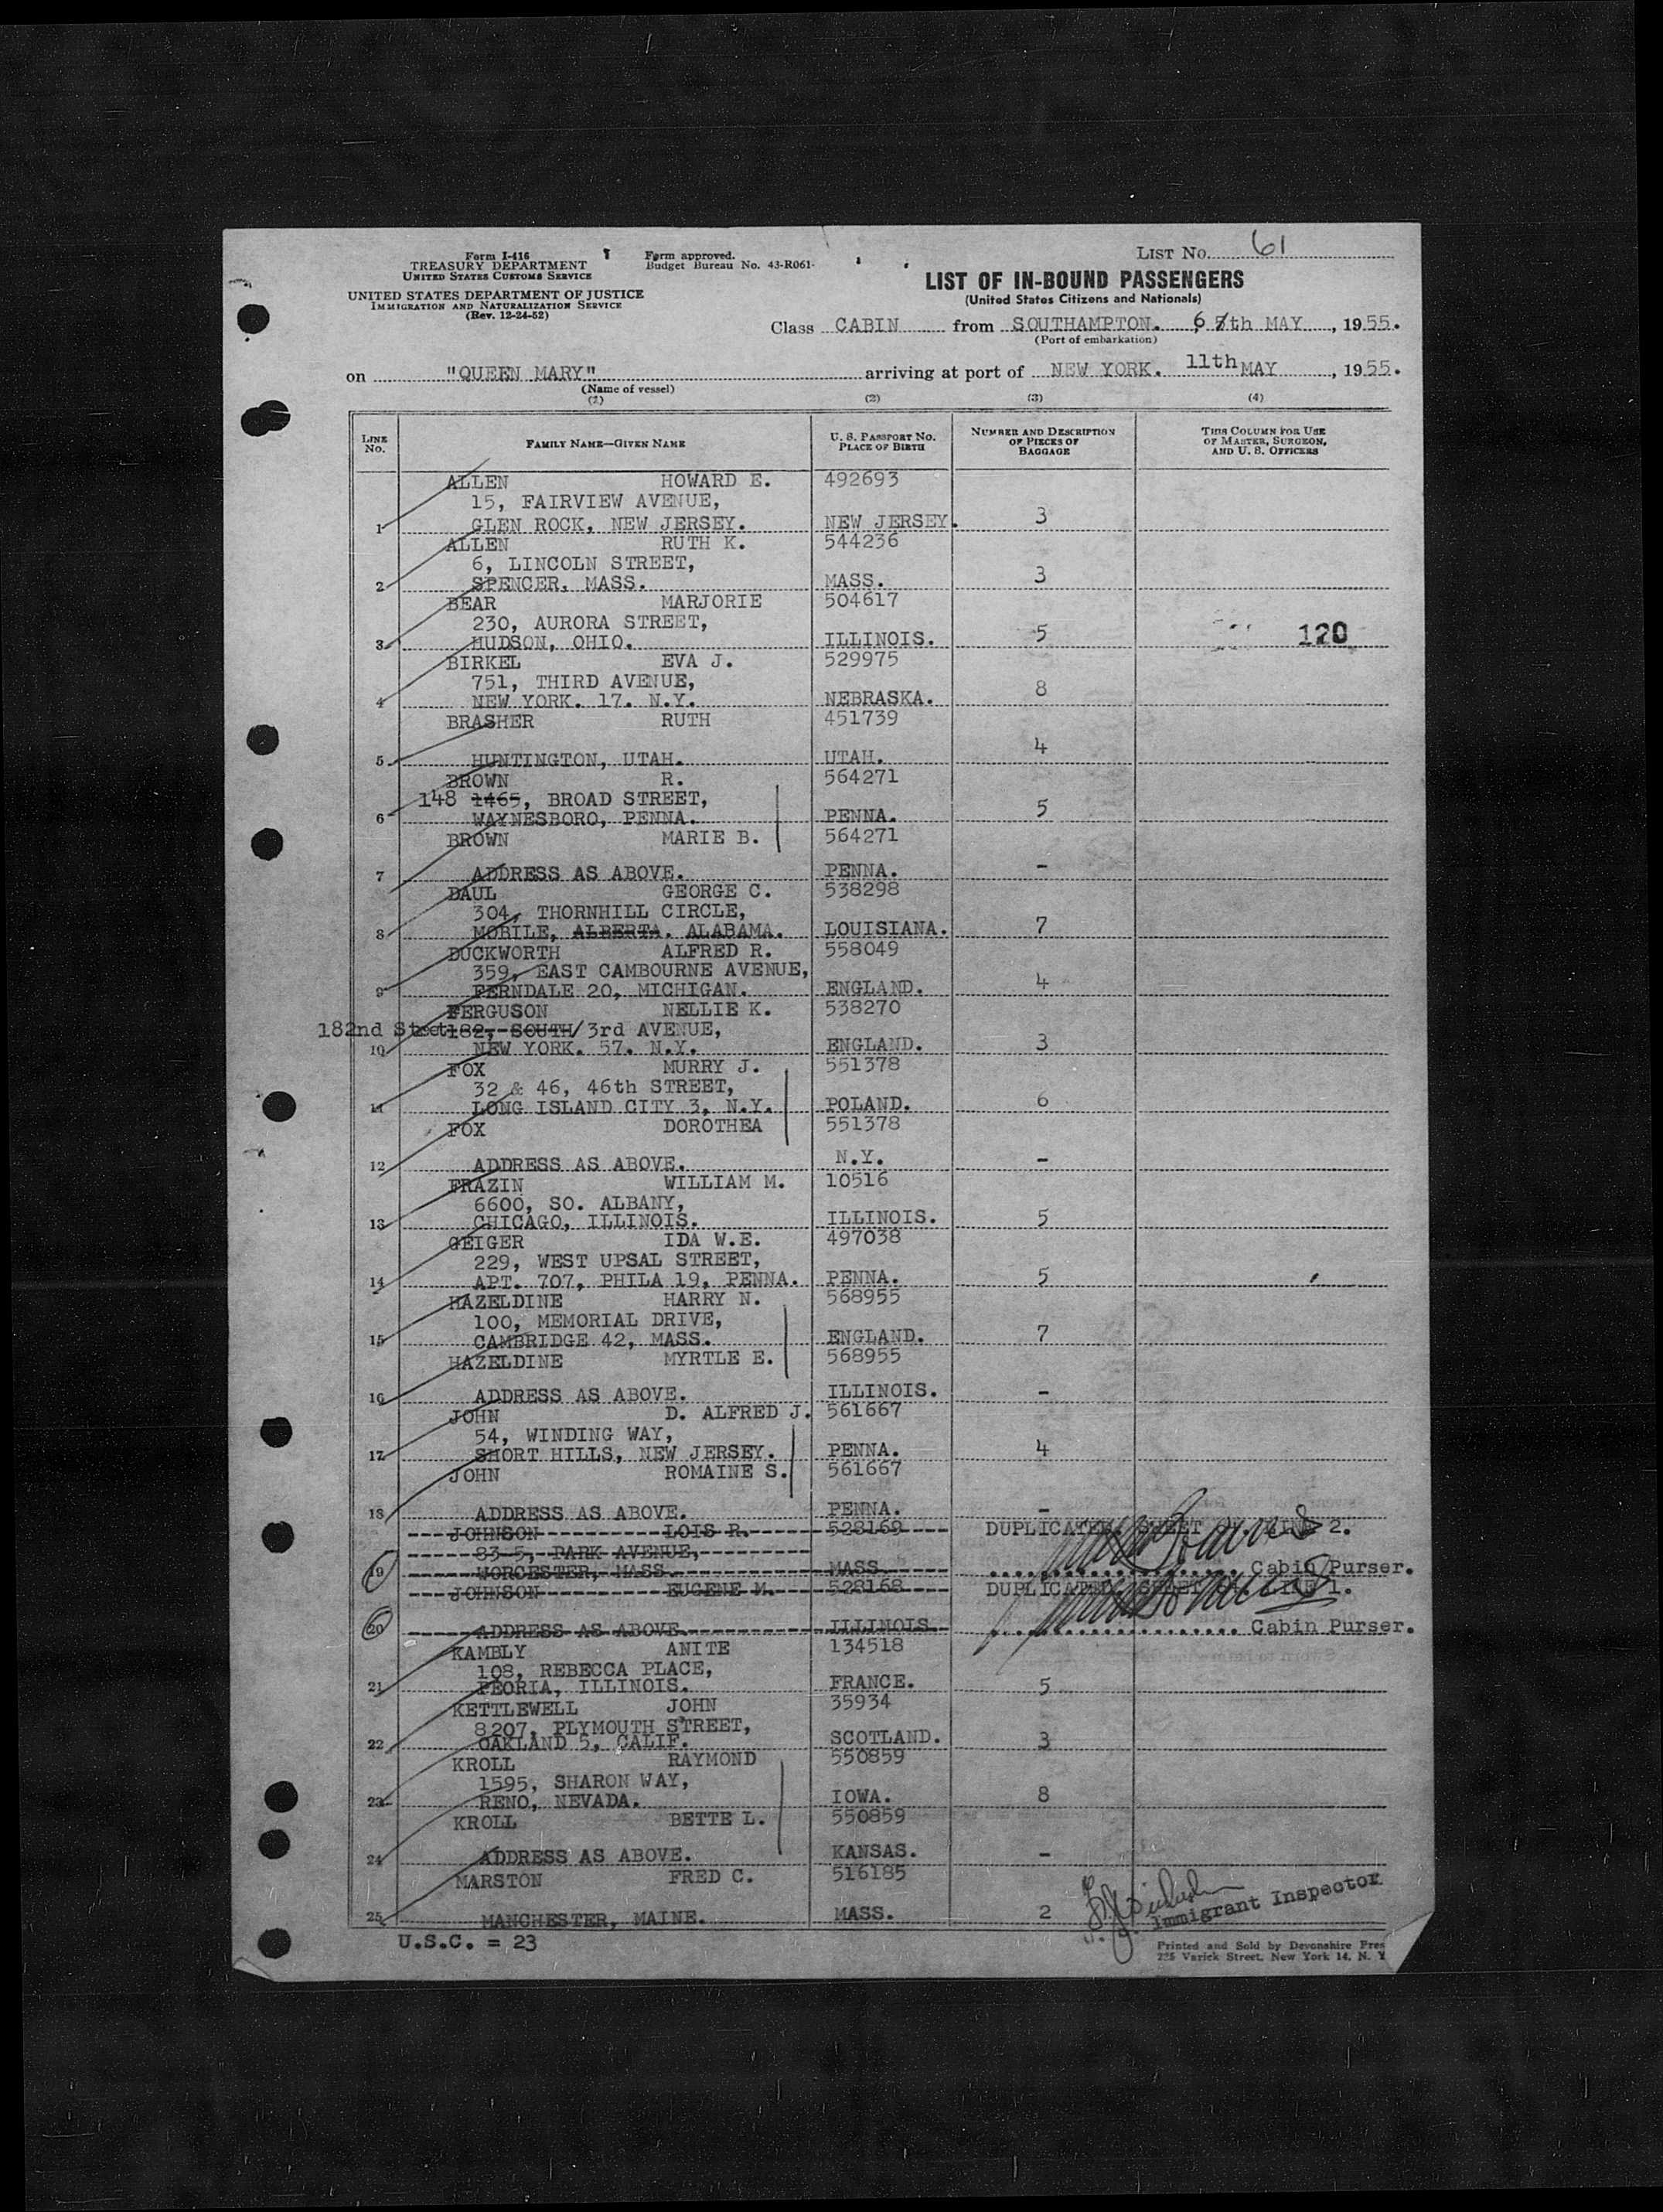 Form I-416
TREASURY DEPARTMENT
UNITED STATES CUSTOMS SERVICE
UNITED STATES DEPARTMENT OF JUSTICE
IMMIGRATION AND NATURALIZATION SERVICE
(Rev. 12-24-52)
Form approved.
Budget Bureau No. 43-R061
LIST No. 61
LIST OF IN-BOUND PASSENGERS
(United States Citizens and Nationals)
Class CABIN from SOUTHAMPTON. 6th MAY, 1955.
(Port of embarkation)
on "QUEEN MARY" arriving at port of NEW YORK. 11th MAY, 1955.
(Name of vessel)
(1) (2) (3) (4)
LINE No. FAMILY NAME—GIVEN NAME U. S. PASSPORT NO. PLACE OF BIRTH NUMBER AND DESCRIPTION OF PIECES OF BAGGAGE THIS COLUMN FOR USE OF MASTER, SURGEON, AND U. S. OFFICERS
ALLEN HOWARD E. 492693
15, FAIRVIEW AVENUE,
1 GLEN ROCK, NEW JERSEY. NEW JERSEY. 3
ALLEN RUTH K. 544236
6, LINCOLN STREET,
2 SPENCER, MASS. MASS. 3
BEAR MARJORIE 504617
230, AURORA STREET,
3 HUDSON, OHIO. ILLINOIS. 5 120
BIRKEL EVA J. 529975
751, THIRD AVENUE,
4 NEW YORK. 17. N.Y. NEBRASKA. 8
BRASHER RUTH 451739
5 HUNTINGTON, UTAH. UTAH. 4
BROWN R. 564271
148 1465, BROAD STREET,
6 WAYNESBORO, PENNA. PENNA. 5
BROWN MARIE B. 564271
7 ADDRESS AS ABOVE. PENNA. -
DAUL GEORGE C. 538298
304, THORNHILL CIRCLE,
8 MOBILE, ALBERTA. ALABAMA. LOUISIANA. 7
DUCKWORTH ALFRED R. 558049
359, EAST CAMBOURNE AVENUE,
9 FERNDALE 20, MICHIGAN. ENGLAND. 4
FERGUSON NELLIE K. 538270
182nd Street 182, SOUTH/3rd AVENUE,
10 NEW YORK. 57. N.Y. ENGLAND. 3
FOX MURRY J. 551378
32 & 46, 46th STREET,
11 LONG ISLAND CITY 3, N.Y. POLAND. 6
FOX DOROTHEA 551378
12 ADDRESS AS ABOVE. N.Y. -
FRAZIN WILLIAM M. 10516
6600, SO. ALBANY,
13 CHICAGO, ILLINOIS. ILLINOIS. 5
GEIGER IDA W.E. 497038
229, WEST UPSAL STREET,
14 APT. 707, PHILA 19, PENNA. PENNA. 5
HAZELDINE HARRY N. 568955
100, MEMORIAL DRIVE,
15 CAMBRIDGE 42, MASS. ENGLAND. 7
HAZELDINE MYRTLE E. 568955
16 ADDRESS AS ABOVE. ILLINOIS. -
JOHN D. ALFRED J. 561667
54, WINDING WAY,
17 SHORT HILLS, NEW JERSEY. PENNA. 4
JOHN ROMAINE S. 561667
18 ADDRESS AS ABOVE. PENNA. -
JOHNSON LOIS R. 528169 DUPLICATED. SHEET LINE 2.
83-5, PARK AVENUE,
19 WORCESTER, MASS. MASS. Cabin Purser.
JOHNSON EUGENE M. 528168 DUPLICATED. SHEET LINE 1.
20 ADDRESS AS ABOVE. ILLINOIS. Cabin Purser.
KAMBLY ANITE 134518
108, REBECCA PLACE,
21 PEORIA, ILLINOIS. FRANCE. 5
KETTLEWELL JOHN 35934
8207, PLYMOUTH STREET,
22 OAKLAND 5, CALIF. SCOTLAND. 3
KROLL RAYMOND 550859
1595, SHARON WAY,
23 RENO, NEVADA. IOWA. 8
KROLL BETTE L. 550859
24 ADDRESS AS ABOVE. KANSAS. -
MARSTON FRED C. 516185
25 MANCHESTER, MAINE. MASS. 2
Immigrant Inspector
U.S.C. = 23
Printed and Sold by Devonshire Pres
225 Varick Street, New York 14, N. Y